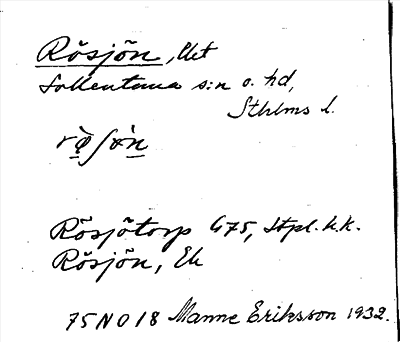 Rösjön,
Sollentuna s:n o. hd,
Sthlms l.
Rösjötorp G 75, Stpl. h.k.
Rösjön, Ek
75 NO 18 Manne Eriksson 1932.